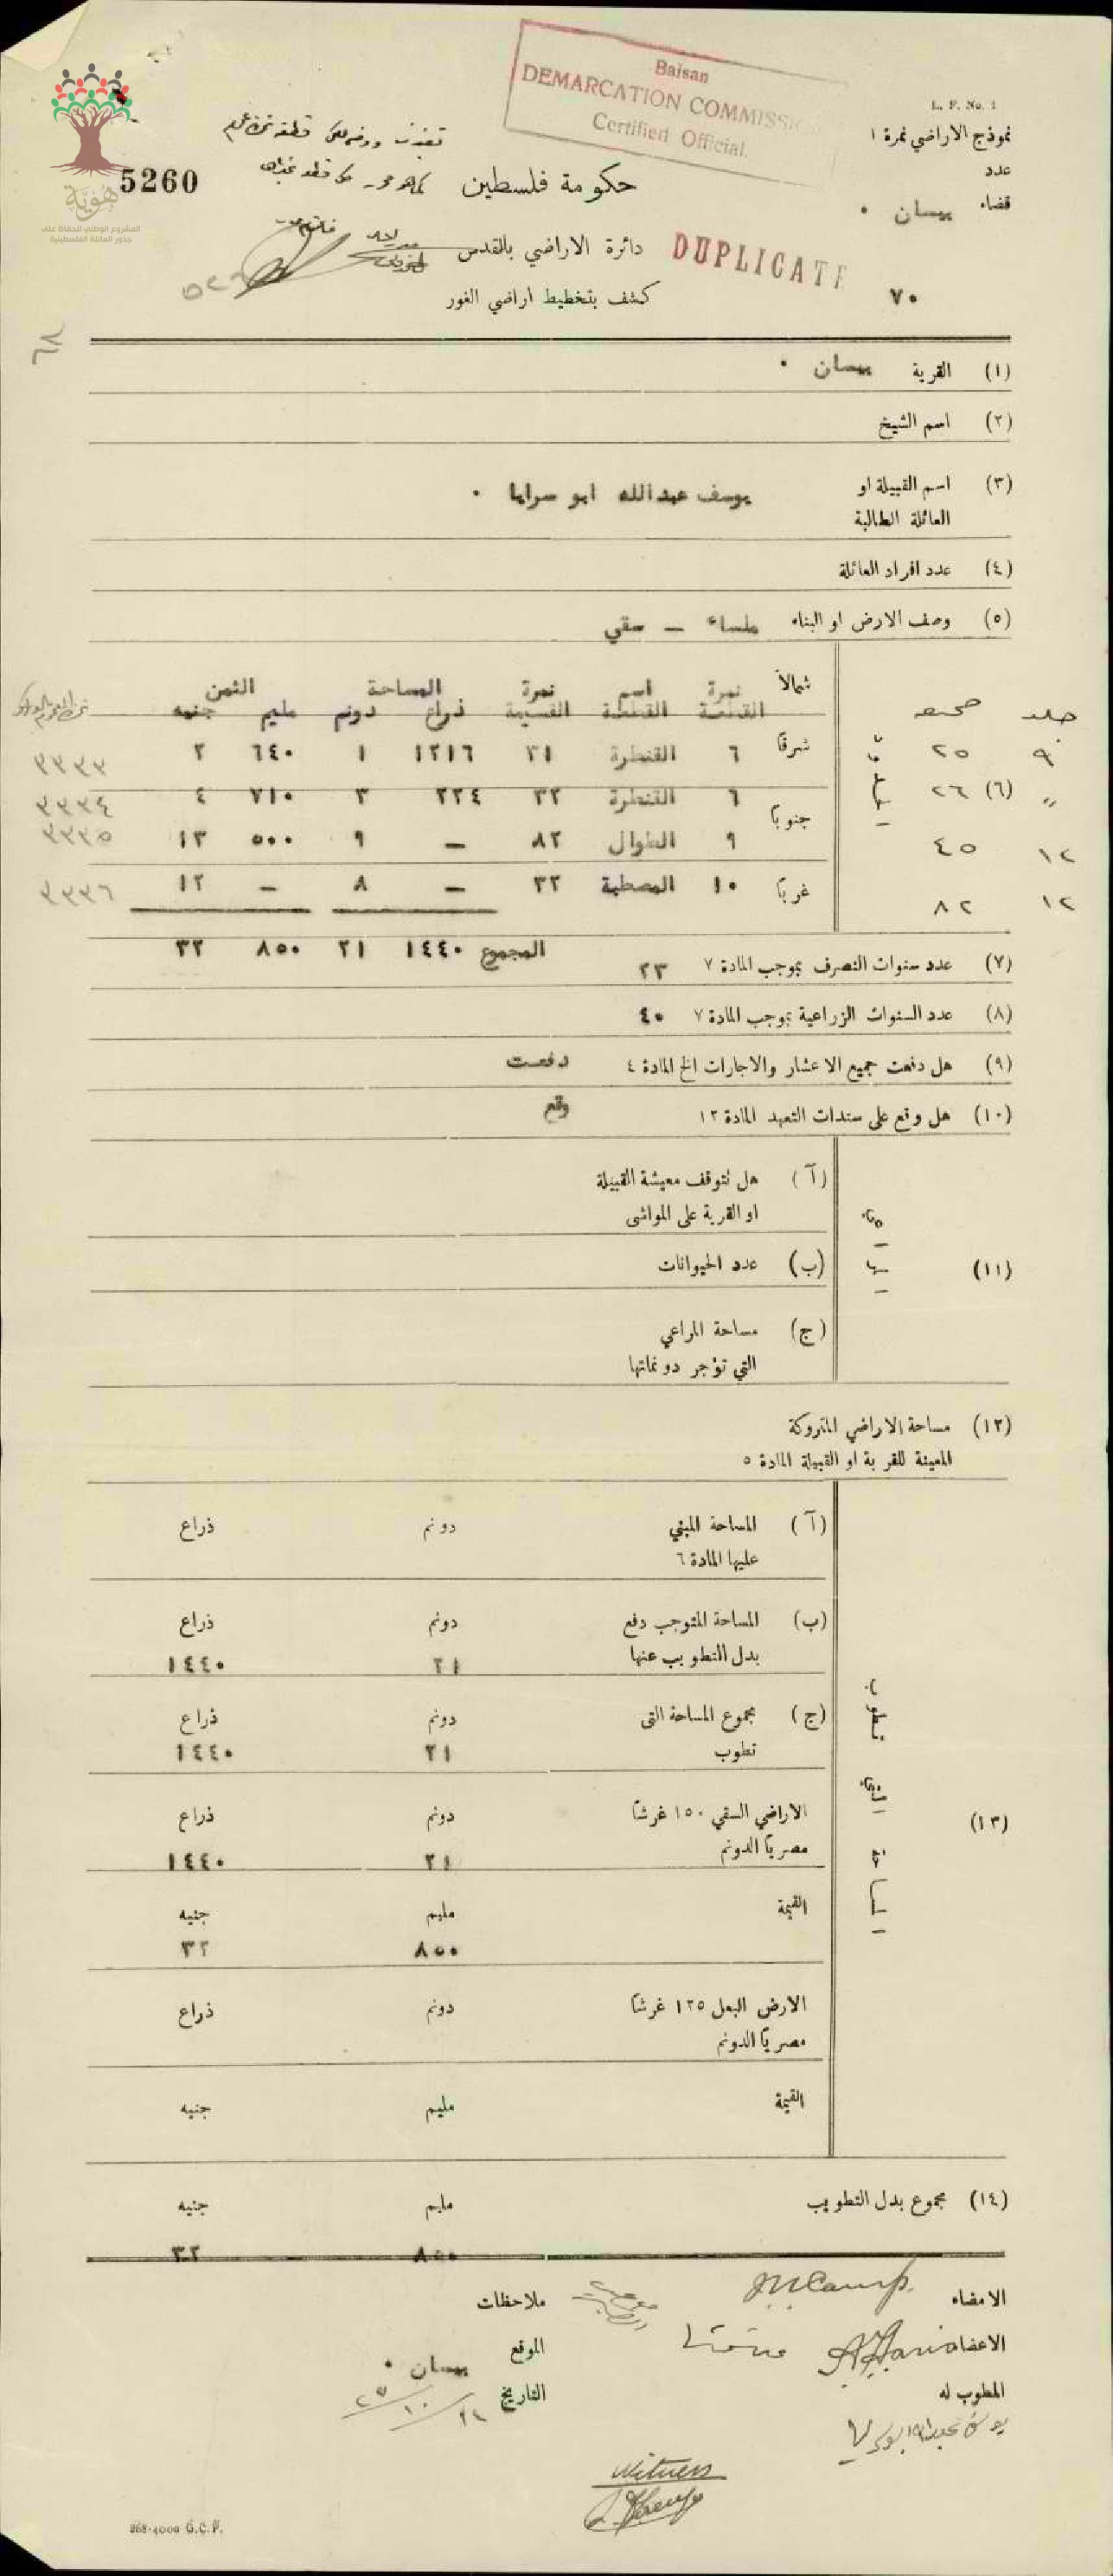 Baisan
DEMARCATION COMMISSION
Certified Official.
L. F. No. 1
نموذج الاراضي نمرة ١
عدد
قضاء بيسان .
5260
هوية
المشروع الوطني للحفاظ على
جذور العائلة الفلسطينية
حكومة فلسطين
دائرة الاراضي بالقدس
DUPLICATE
كشف بتخطيط اراضي الغور
٧٠
٦٨
(١) القرية بيسان .
(٢) اسم الشيخ
(٣) اسم القبيلة او
العائلة الطالبة
يوسف عبدالله ابو سرايا .
(٤) عدد افراد العائلة
(٥) وصف الارض او البناء ملساء - سقي
جلد صحيفه (٦) شمالاً شرقاً جنوباً غربًا
نمرة القطعة اسم القطعة نمرة القسيمة المساحة ذراع دونم الثمن مليم جنيه
٩ ٢٥ ٦ القنطرة ٣١ ١٢١٦ ١ ٦٤٠ ٢ ٣٣٣٣
" ٢٦ ٦ القنطرة ٣٢ ٢٢٤ ٣ ٧١٠ ٤ ٣٣٣٤
١٢ ٤٥ ٩ الطوال ٨٢ - ٩ ٥٠٠ ١٣ ٣٣٣٥
١٢ ٨٢ ١٠ المصطبة ٣٢ - ٨ - ١٢ ٣٣٣٦
المجموع ١٤٤٠ ٢١ ٨٥٠ ٣٢
(٧) عدد سنوات التصرف بموجب المادة ٧ ٢٣
(٨) عدد السنوات الزراعية بموجب المادة ٧ ٤٠
(٩) هل دفعت جميع الاعشار والاجارات الخ المادة ٤ دفعت
(١٠) هل وقع على سندات التعهد المادة ١٢ وقع
(١١)
(آ) هل تتوقف معيشة القبيلة
او القرية على المواشى
(ب) عدد الحيوانات
(ج) مساحة المراعي
التي تؤجر دونماتها
(١٢) مساحة الاراضي المتروكة
المعينة للقرية او القبيلة المادة ٥
(١٣)
(آ) المساحة المبني دونم ذراع
عليها المادة ٦
(ب) المساحة المتوجب دفع دونم ذراع
بدل التطويب عنها ٢١ ١٤٤٠
(ج) مجموع المساحة التى دونم ذراع
تطوب ٢١ ١٤٤٠
الاراضي السقي ١٥٠ غرشاً دونم ذراع
مصرياً الدونم ٢١ ١٤٤٠
القيمة مليم جنيه
٨٥٠ ٣٢
الارض البعل ١٢٥ غرشاً دونم ذراع
مصرياً الدونم
القيمة مليم جنيه
(١٤) مجموع بدل التطويب مليم جنيه
٨٥٠ ٣٢
الامضاء
ملاحظات
الاعضاء
الموقع بيسان .
المطوب له
التاريخ ٢٧/١٠/٢٤
Witness
268-4000 G.C.P.